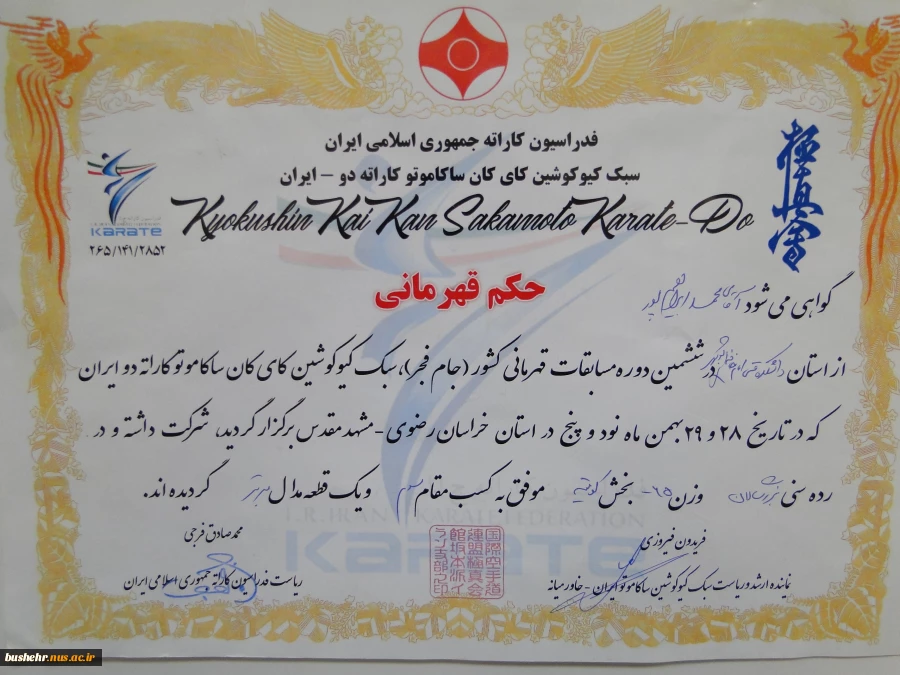 فدراسیون کاراته جمهوری اسلامی ایران
سبک کیوکوشین کای کان ساکاموتو کاراته دو – ایران
Kyokushin Kai Kan Sakamoto Karate-Do
極真會
KARATE
۲۶۵/۱۴۱/۲۸۵۲
حکم قهرمانی
گواهی می شود آقای محمد ابراهیم پور
از استان دانشکده فنی امام خمینی در ششمین دوره مسابقات قهرمانی کشور (جام فجر)، سبک کیوکوشین کای کان ساکاموتو کاراته دو ایران
که در تاریخ ۲۸ و ۲۹ بهمن ماه نود و پنج در استان خراسان رضوی - مشهد مقدس برگزار گردید، شرکت داشته و در
رده سنی بزرگسالان وزن ۶۵- بخش کومیته موفق به کسب مقام سوم و یک قطعه مدال برنز گردیده اند.
I.R. IRAN KARATE FEDERATION
KARATE
فریدون فیروزی
نماینده ارشد و ریاست سبک کیوکوشین ساکاموتو ایران - خاورمیانه
محمد صادق فرجی
ریاست فدراسیون کاراته جمهوری اسلامی ایران
国際空手道
連盟極真会
館坂本派
bushehr.nus.ac.ir